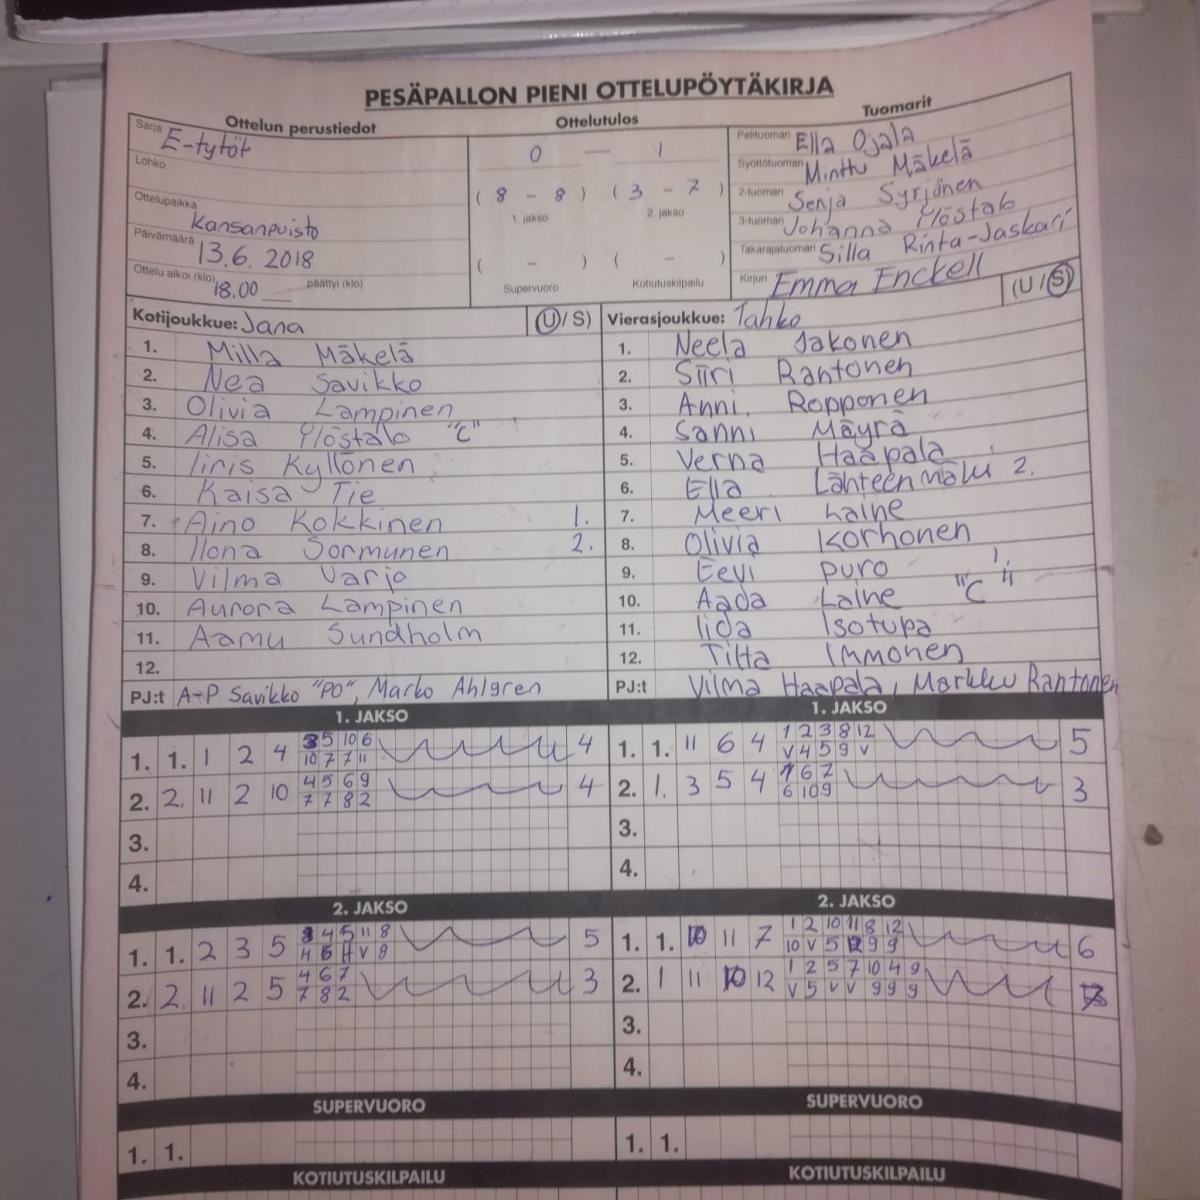 PESÄPALLON PIENI OTTELUPÖYTÄKIRJA
Ottelun perustiedot
Sarja E-tytöt
Lohko
Ottelupaikka Kansanpuisto
Päivämäärä 13.6.2018
Ottelu alkoi (klo) 18.00 päättyi (klo)
Ottelutulos
0 — 1
( 8 - 8 ) ( 3 - 7 )
1. jakso 2. jakso
( - ) ( - )
Supervuoro Kotiutuskilpailu
Tuomarit
Pelituomari Ella Ojala
Syöttötuomari Minttu Mäkelä
2-tuomari Senja Syrjönen
3-tuomari Johanna Ylöstalo
Takarajatuomari Silla Rinta-Jaskari
Kirjuri Emma Enckell
Kotijoukkue: Jana (U/S)
1. Milla Mäkelä
2. Nea Savikko
3. Olivia Lampinen
4. Alisa Ylöstalo "C"
5. Iiris Kyllönen
6. Kaisa Tie
7. Aino Kokkinen 1.
8. Ilona Sormunen 2.
9. Vilma Varjo
10. Aurora Lampinen
11. Aamu Sundholm
12.
PJ:t A-P Savikko "PO", Marko Ahlgren
Vierasjoukkue: Tahko (U/S)
1. Neela Jakonen
2. Siiri Rantonen
3. Anni Ropponen
4. Sanni Mäyrä
5. Verna Haapala
6. Ella Lähteenmäki 2.
7. Meeri Laine
8. Olivia Korhonen
9. Eevi Puro 1.
10. Aada Laine "C"
11. Iida Isotupa
12. Tilta Immonen
PJ:t Vilma Haapala, Markku Rantonen
1. JAKSO
1. 1. 1 2 4 3 5 10 6 4
10 7 7 11
2. 2. 11 2 10 4 5 6 9 4
7 7 8 2
3.
4.
1. JAKSO
1. 1. 11 6 4 1 2 3 8 12 5
V 4 5 9 V
2. 1. 3 5 4 1 6 7 3
6 10 9
3.
4.
2. JAKSO
1. 1. 2 3 5 3 4 5 11 8 5
2. 2. 11 2 5 4 6 7 3
7 8 2
3.
4.
2. JAKSO
1. 1. 10 11 7 1 2 10 11 8 12 6
10 V 5 12 9 9
2. 1 11 10 12 1 2 5 7 10 4 9
V 5 V V 9 9 9
3.
4.
SUPERVUORO
1. 1.
SUPERVUORO
1. 1.
KOTIUTUSKILPAILU
KOTIUTUSKILPAILU